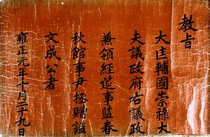 教旨
大匡輔國崇祿大
夫議政府右議政
兼領經筵事監春
秋館事尹拯贈諡
文成公者
雍正元年十月二十九日